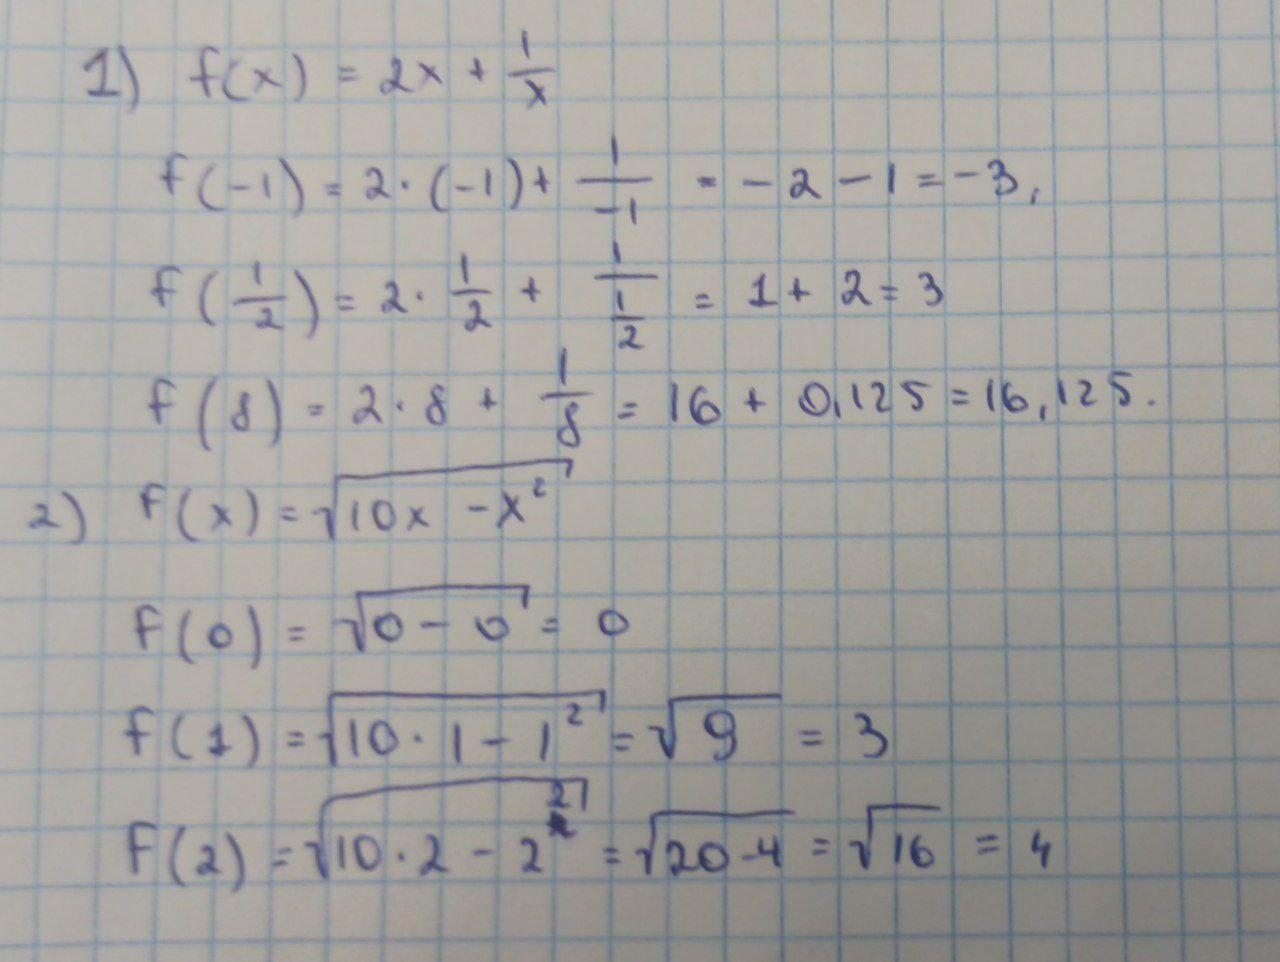 1) f(x) = 2x + 1/x
f(-1) = 2·(-1) + 1/-1 = -2 - 1 = -3,
f(1/2) = 2·1/2 + 1/(1/2) = 1 + 2 = 3
f(8) = 2·8 + 1/8 = 16 + 0,125 = 16,125.
2) f(x) = √(10x - x²)
f(0) = √(0 - 0) = 0
f(1) = √(10·1 - 1²) = √9 = 3
f(2) = √(10·2 - 2²) = √(20-4) = √16 = 4